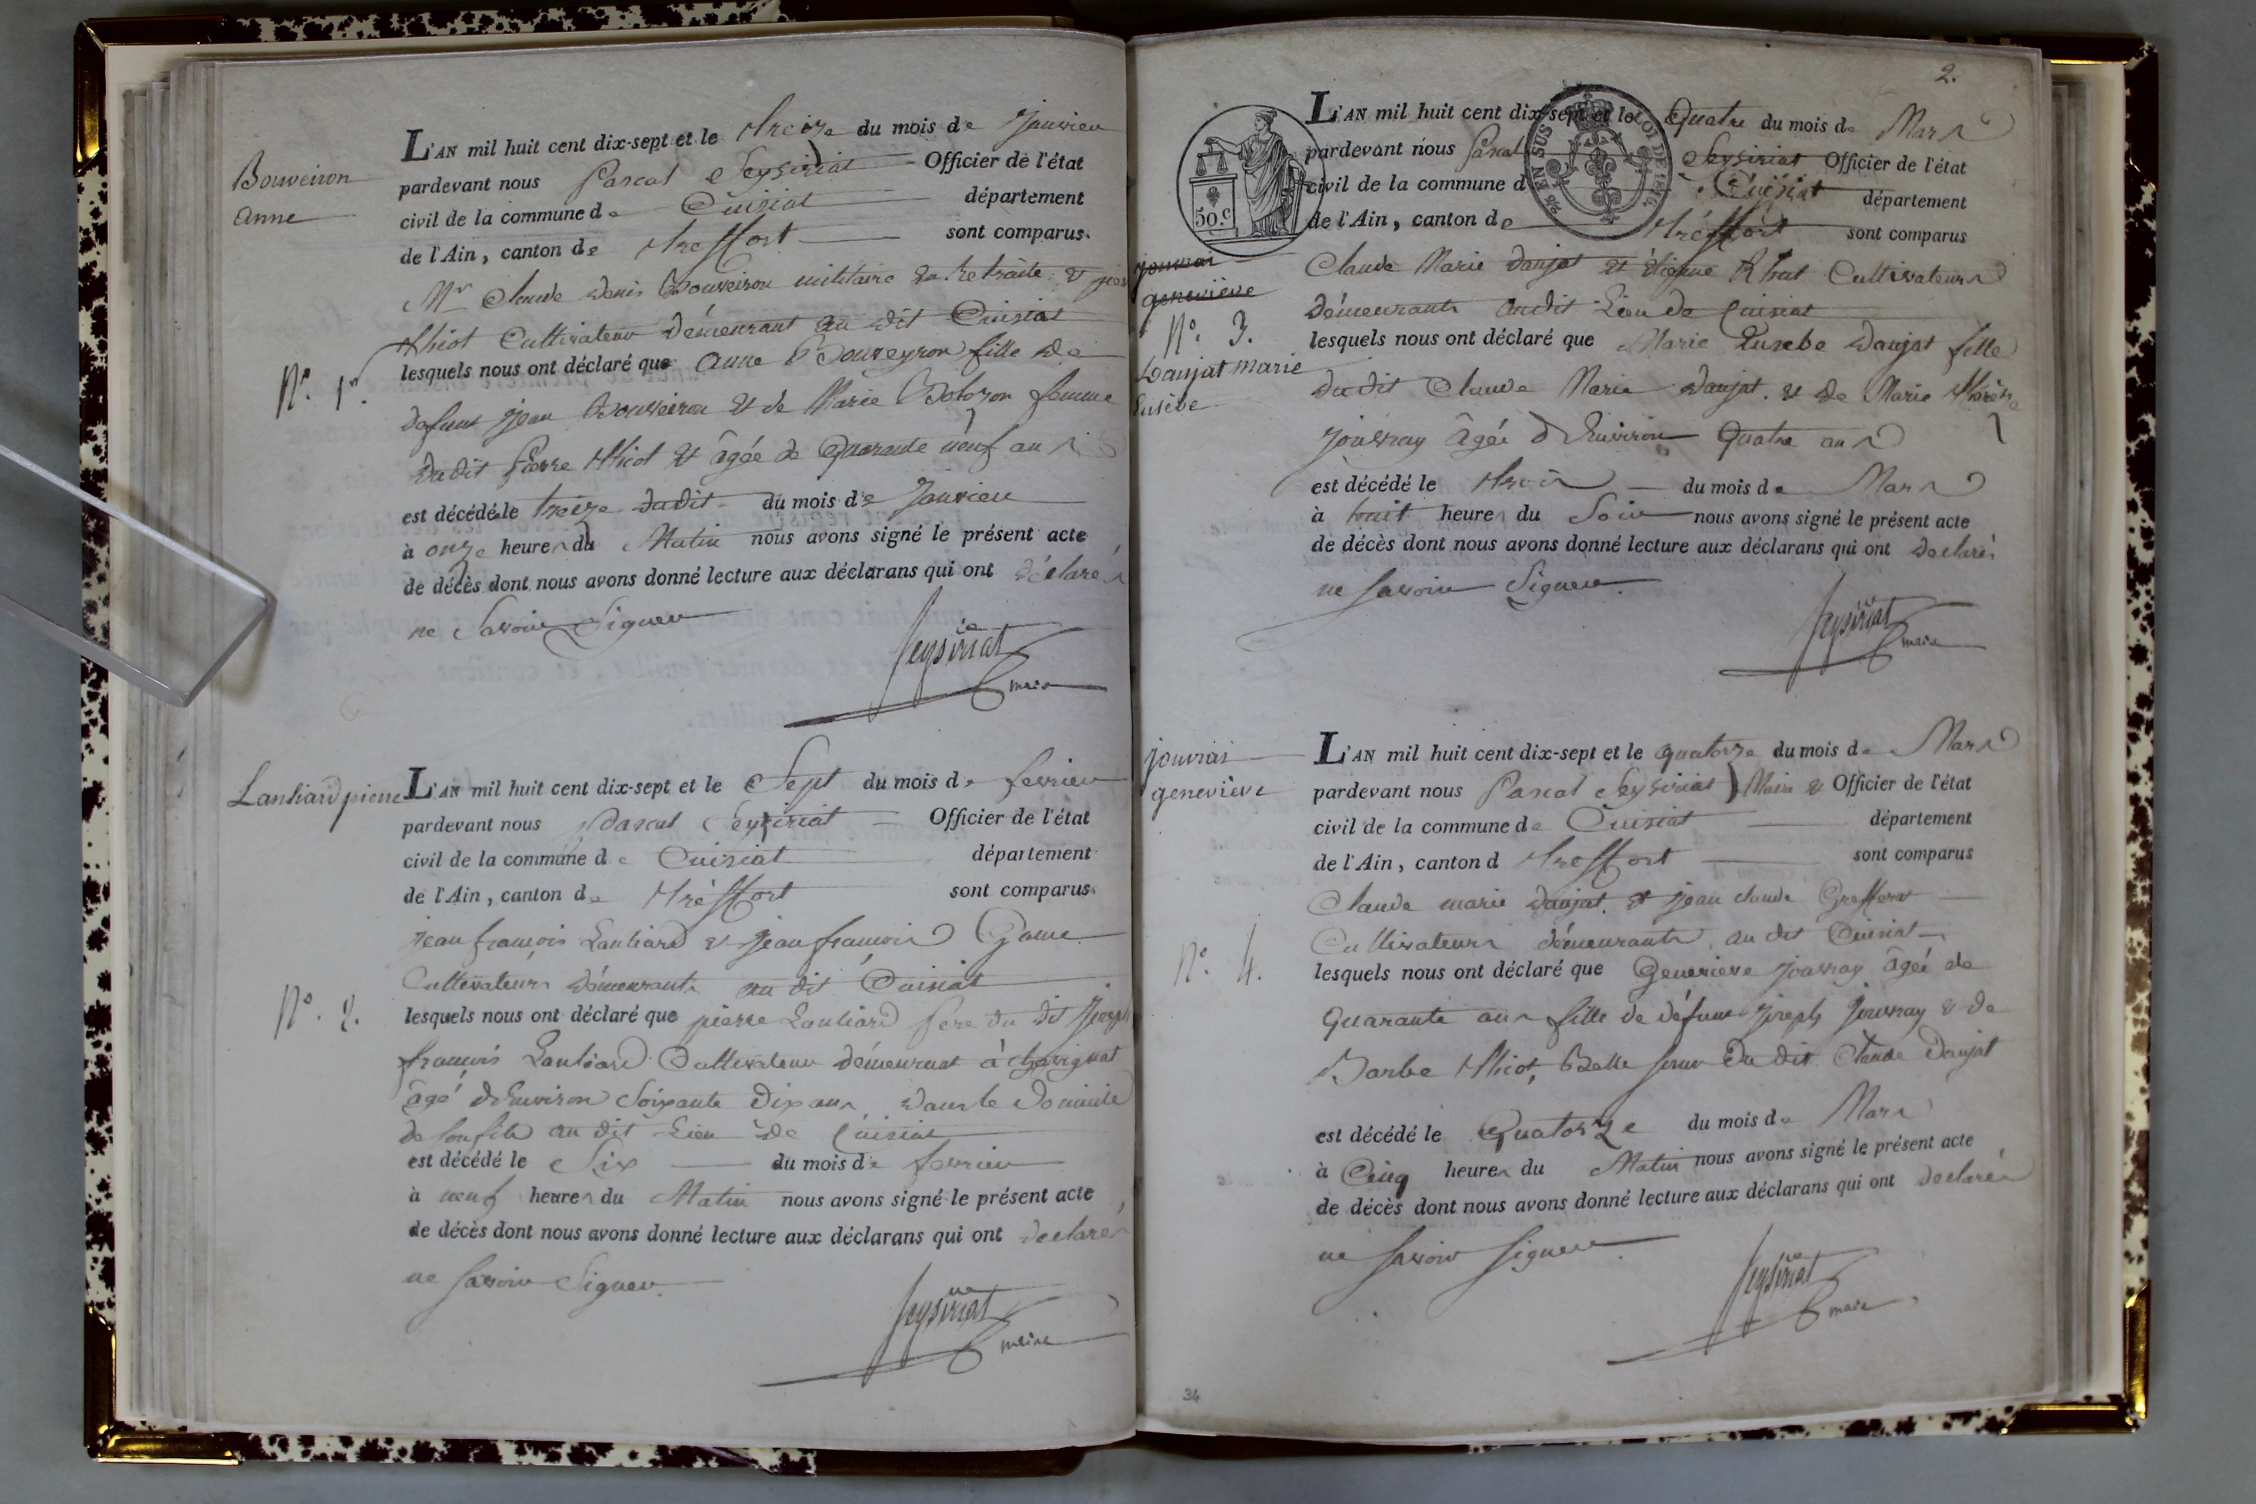 Bouveiron
anne
N.o 1.er
L'AN mil huit cent dix-sept et le treize du mois de Janvier
pardevant nous Pascal Seysiriat Officier de l'état
civil de la commune de Cuisiat département
de l'Ain, canton de treffort sont comparus
Mr Claude Denis Bouveiron militaire en Retraite & pierre
thicot Cultivateur démeurant au dit Cuisiat
lesquels nous ont déclaré que anne Bouveyron fille de
defunt jean Bouveiron et de Marie femme
du dit Pierre thicot et âgée de Quarante neuf ans
est décédé le treize dudit du mois de Janvier
à onze heures du Matin nous avons signé le présent acte
de décès dont nous avons donné lecture aux déclarans qui ont déclarés
ne Savoir Signer
Seysiriat
maire
Lauliard pierre
N.o 2.
L'AN mil huit cent dix-sept et le Sept du mois de fevrier
pardevant nous Pascal Seysiriat Officier de l'état
civil de la commune de Cuisiat département
de l'Ain, canton de tréffort sont comparus
jean françois Lauliard & jean françois Game
Cultivateurs démeurants au dit Cuisiat
lesquels nous ont déclaré que pierre Lauliard pere du dit
françois Lauliard Cultivateur démeurant à chavignat
âgé d'Environ Soixante Dix ans, dans le Domicile
de son fils au dit Lieu de Cuisiat
est décédé le Six du mois de fevrier
à neuf heures du Matin nous avons signé le présent acte
de décès dont nous avons donné lecture aux déclarans qui ont declarés
ne Savoir Signer
Seysiriat
maire
2.
50.c
EN SUS
LOI DE 1816
jouvrai
geneviève
N.o 3.
Daujat marie
Eusèbe
L'AN mil huit cent dix-sept et le Quatre du mois de Mars
pardevant nous Pascal Seysiriat Officier de l'état
civil de la commune d Cuisiat département
de l'Ain, canton de tréffort sont comparus
Claude Marie Daujat et étienne Cultivateurs
démeurants audit Lieu de Cuisiat
lesquels nous ont déclaré que Marie Eusebe Daujat fille
du dit Claude Marie Daujat & de Marie thérèse
jouvray âgée d'Environ Quatre ans
est décédé le trois du mois de Mars
à huit heures du Soir nous avons signé le présent acte
de décès dont nous avons donné lecture aux déclarans qui ont declarés
ne Savoir Signer
Seysiriat
maire
jouvrai
geneviève
N.o 4.
L'AN mil huit cent dix-sept et le quatorze du mois de Mars
pardevant nous Pascal Seysiriat Maire & Officier de l'état
civil de la commune de Cuisiat département
de l'Ain, canton d treffort sont comparus
Claude marie Daujat & jean claude Greffera
Cultivateurs démeurants au dit Cuisiat
lesquels nous ont déclaré que Genevieve jouvray âgée de
Quarante ans fille de défunt Joseph Jouvray & de
Barbe thicot, Belle Soeur du dit Claude Daujat
est décédé le Quatorze du mois de Mars
à Cinq heures du Matin nous avons signé le présent acte
de décès dont nous avons donné lecture aux déclarans qui ont declarés
ne Savoir Signer
Seysiriat
maire
34